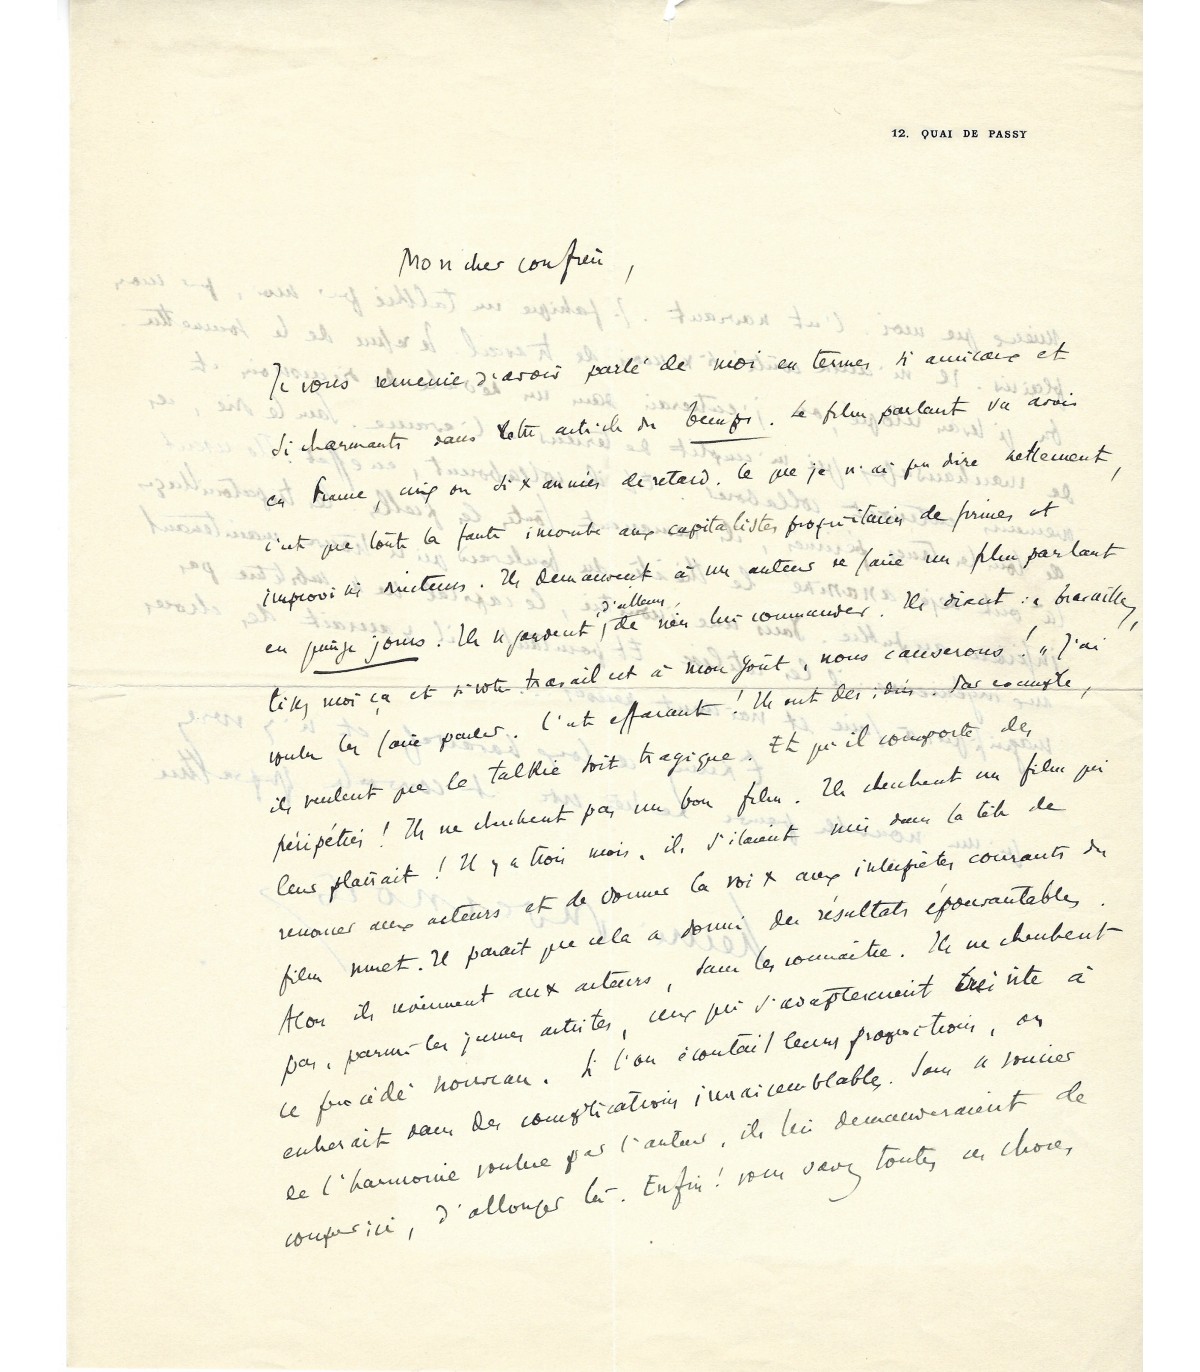 12. QUAI DE PASSY
Mon cher confrère,
Je vous remercie d'avoir parlé de moi en termes si amicaux et
si charmants dans votre article du Temps. Le film parlant va avoir
en France, cinq ou six années de retard. Ce que je n'ai pu dire nettement,
c'est que toute la faute incombe aux capitalistes propriétaires de firmes et
improvisés metteurs. Ils demandent à un auteur de faire un film parlant
en quinze jours. Ils se gardent, d'ailleurs, de rien lui commander. Ils disent : « travaillez,
lisez moi ça et si votre travail est à mon goût, nous causerons ! » J'ai
voulu les faire parler. C'est effarant ! Ils ont des idées. Par exemple,
ils veulent que le talkie soit tragique. Et qu'il comporte des
péripéties ! Ils ne cherchent pas un bon film. Ils cherchent un film qui
leur plairait ! Il y a trois mois, ils s'étaient mis dans la tête de
renoncer aux acteurs et de donner la voix aux interprètes courants du
film muet. Il paraît que cela a donné des résultats épouvantables.
Alors ils reviennent aux acteurs, sans les connaître. Ils ne cherchent
pas, parmi les jeunes artistes, ceux qui s'adapteraient très vite à
ce procédé nouveau. Si l'on écoutait leurs propositions, on
entrerait dans des complications invraisemblables. Sans se soucier
de l'harmonie voulue par l'auteur, ils lui demanderaient de
couper ici, d'allonger là. Enfin ! vous savez toutes ces choses